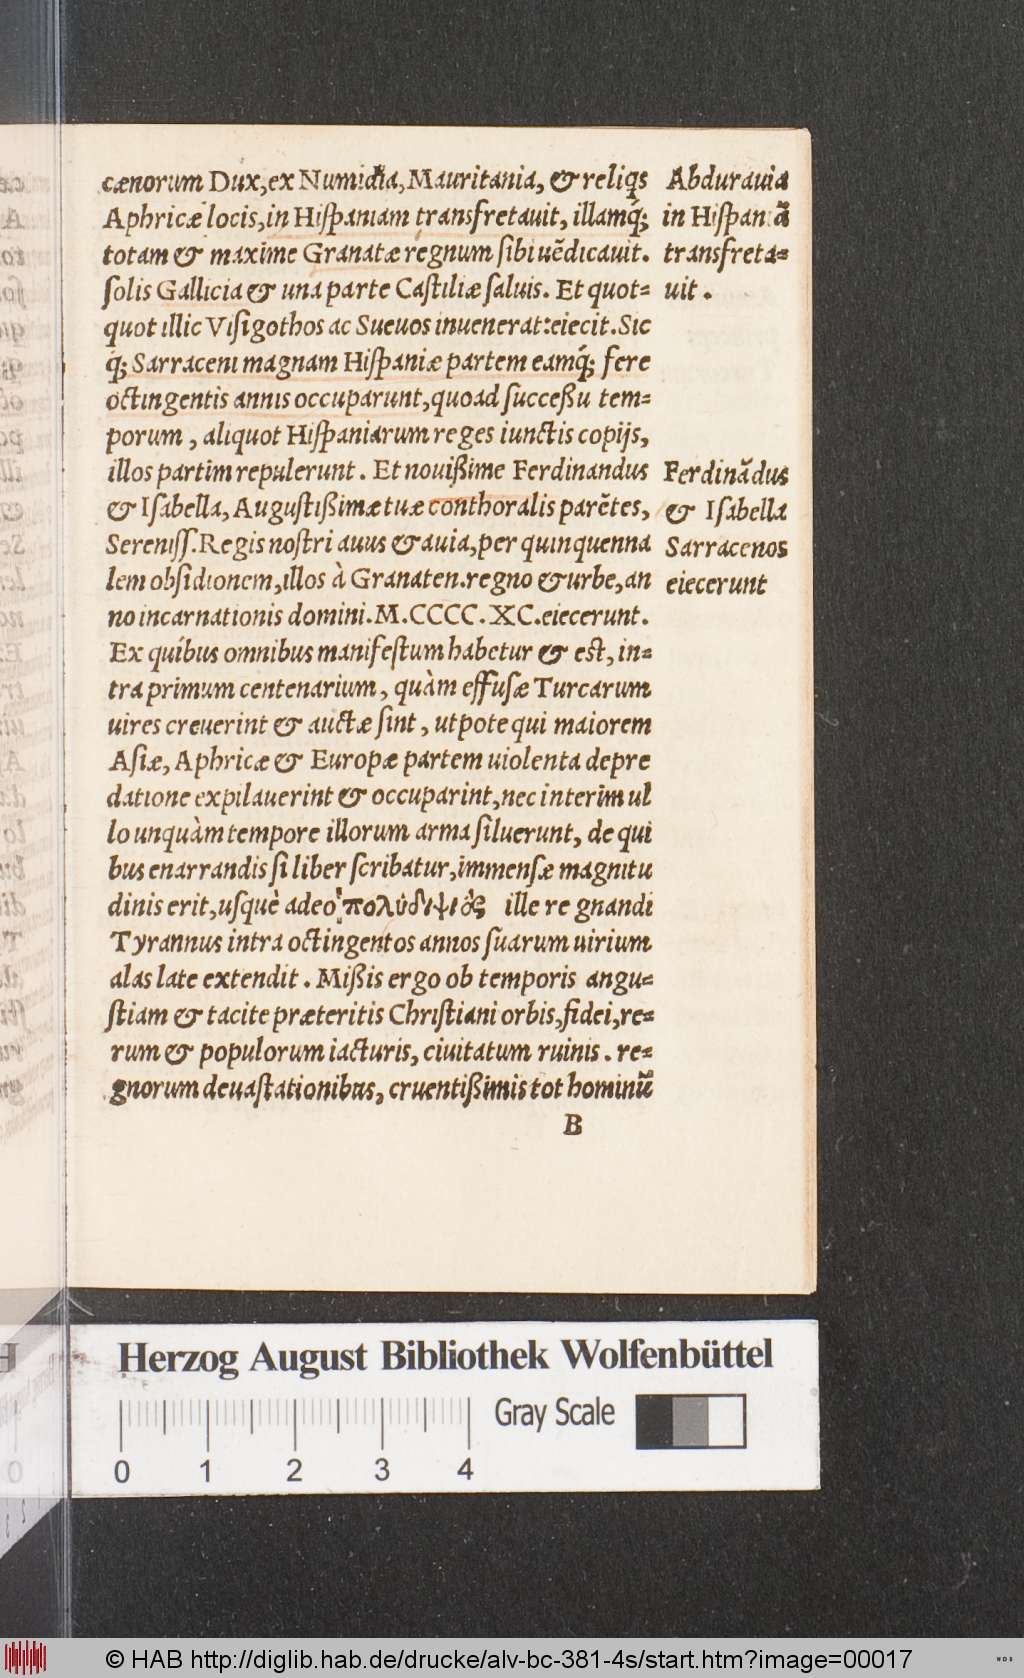 cænorum Dux,ex Numidia,Mauritania, & reliqs
Aphricæ locis,in Hiſpaniam transfretauit, illamq́;
totam & maxime Granatæ regnum ſibi uẽdicauit.
ſolis Gallicia & una parte Caſtiliæ ſaluis. Et quot=
quot illic Viſigothos ac Sueuos inuenerat:eiecit.Sic
q́; Sarraceni magnam Hiſpaniæ partem eamq́; fere
octingentis annis occuparunt,quoad ſucceßu tem=
porum , aliquot Hiſpaniarum reges iunctis copijs,
illos partim repulerunt . Et nouißime Ferdinandus
& Iſabella, Auguſtißimæ tuæ conthoralis parẽtes,
Sereniſſ.Regis noſtri auus & auia,per quinquenna
lem obſidionem,illos à Granaten.regno & urbe,an
no incarnationis domini.M.CCCC.XC.eiecerunt.
Ex quibus omnibus manifeſtum habetur & est, in=
tra primum centenarium , quàm effuſæ Turcarum
uires creuerint & auctæ ſint , utpote qui maiorem
Aſiæ, Aphricæ & Europæ partem uiolenta depre
datione expilauerint & occuparint,nec interim ul
lo unquàm tempore illorum arma ſiluerunt, de qui
bus enarrandis ſi liber ſcribatur,immenſæ magnitu
dinis erit,uſquè adeo πολύδιψιός ille re gnandi
Tyrannus intra octingentos annos ſuarum uirium
alas late extendit . Mißis ergo ob temporis angu=
ſtiam & tacite præteritis Chriſtiani orbis,fidei,re=
rum & populorum iacturis, ciuitatum ruinis . re=
gnorum deuaſtationibus, cruentißimis tot hominũ
B
Abdurauia
in Hiſpaniã
transfreta=
uit .
Ferdinãdus
& Iſabella
Sarracenos
eiecerunt
Herzog August Bibliothek Wolfenbüttel
Gray Scale
0 1 2 3 4
© HAB http://diglib.hab.de/drucke/alv-bc-381-4s/start.htm?image=00017